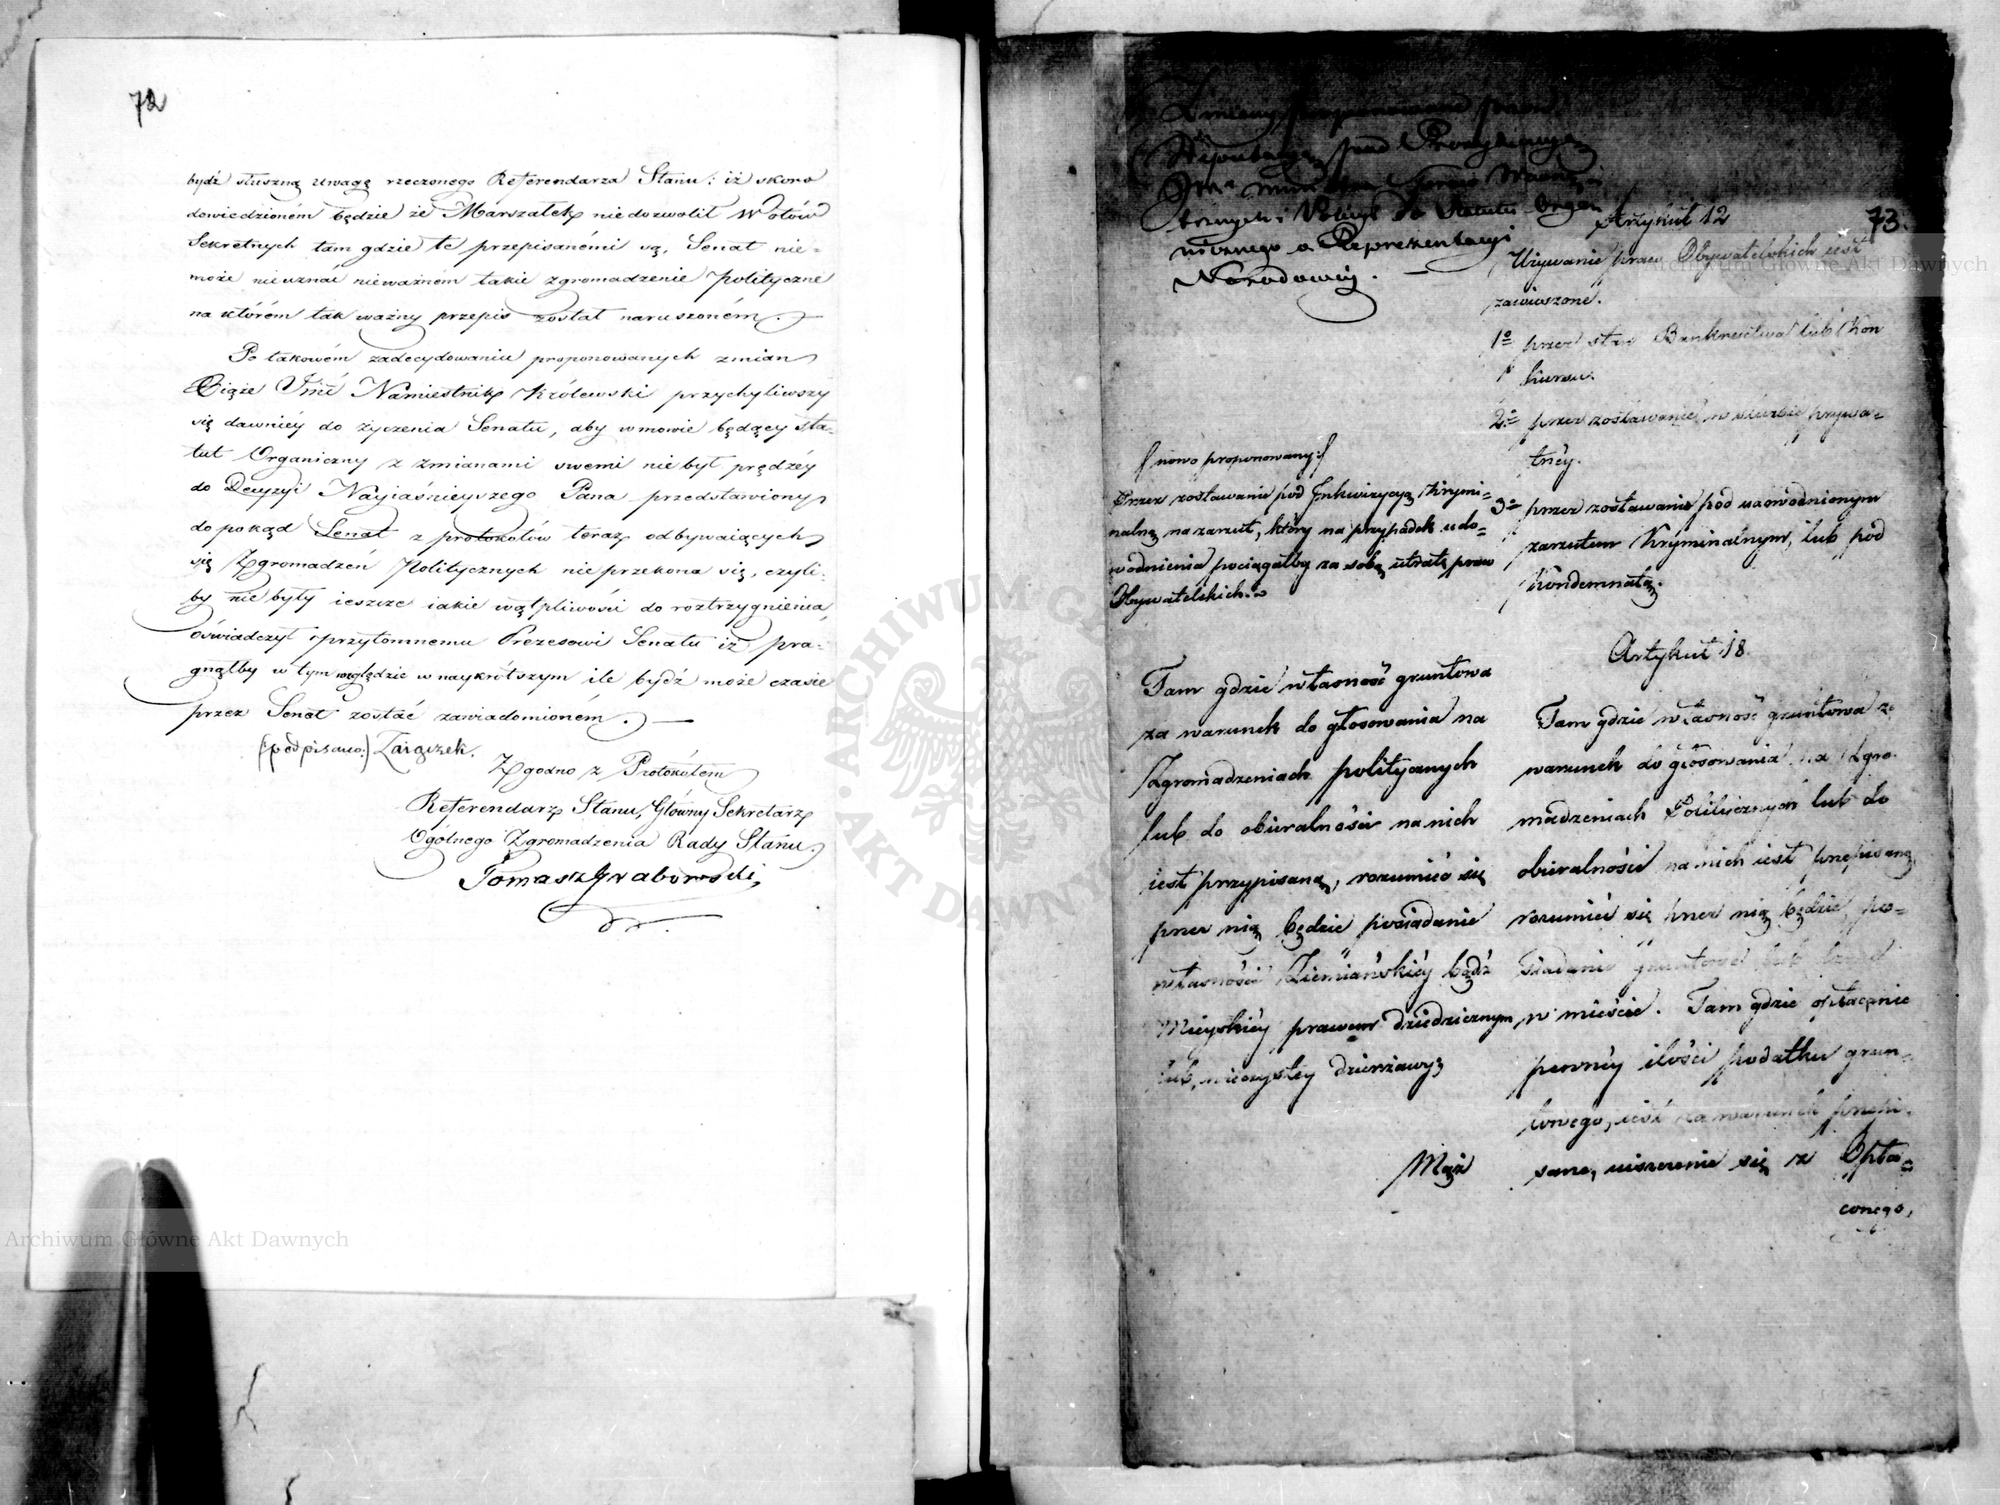 72
bydź słuszną uwagę rzeczonego Referendarza Stanu: iż skoro
dowiedzioném będzie że Marszałek niedozwolił Wotów
Sekretnych tam gdzie te przepisanémi są, Senat nie-
może nieuznać nieważném takie zgromadzenie polityczne
na którém tak ważny przepis został naruszoném.
Po takowém zadecydowaniu proponowanych zmian
Xiąże Jmć Namiestnik Królewski przychyliwszy
się dawniéy do życzenia Senatu, aby w mowie będący sta-
tut Organiczny z zmianami swemi nie był prędzéy
do Decyzyi Nayiaśnieyszego Pana przedstawiony
dopokąd Senat z protokołów teraz odbywaiących
się Zgromadzeń Politycznych nie przekona się, czyli-
by nie były ieszcze iakie wątpliwości do roztrzygnienia,
oświadczył przytomnemu Prezesowi Senatu iż pra-
gnąłby w tym względzie w naykrótszym ile bydź może czasie
przez Senat zostać zawiadomionem.
(podpisano:) Zaiączek.
Zgodno z Protokołem
Referendarz Stanu, Główny Sekretarz
Ogólnego Zgromadzenia Rady Stanu.
Tomasz Grabowski,
73.
Zmiany proponowane przez
Deputacyą pod Prezydencyą
Ministra Spraw Wewnę-
trznych i Policyi do Statutu Orga-
nicznego o Reprezentacyi
Narodowéy.
Artykuł 12
Używanie praw Obywatelskich iest
zawieszone.
1º przez stan Bankructwa lub Kon
kursu.
2º przez zostawanie w służbie prywa-
tnéy.
3º przez zostawanie pod uzowodnionym
zarzutem Kryminalnym, lub pod
Kondemnatą.
(nowo proponowany)
Przez zostawanie pod Inkwizycyą Krymi-
nalną na zarzut, który na przypadek udo-
wodnienia pociągałby za sobą utratę praw
Obywatelskich.
Artykuł 18.
Tam gdzie własność gruntowa
za warunek do głosowania na
Zgromadzeniach politycznych
lub do obieralności na nich
iest przypisaną, rozumieć się
przez nią będzie posiadanie
własności Ziemiańskiéy bądź
Mieyskiéy prawem dziedzicznym
lub wieczystéy dzierżawy;
Mąż
Tam gdzie własność gruntowa za
warunek do głosowania na Zgro-
madzeniach Politycznych lub do
obieralności na nich iest przepisaną,
rozumieć się przez nią będzie, po-
siadanie gruntowe lub
w mieście. Tam gdzie opłacanie
pewnéy ilości podatku grun-
towego, iest za warunek przepi-
sane, uiszczenie się z Opła-
conego,
ARCHIWUM GŁÓWNE AKT DAWNYCH
Archiwum Główne Akt Dawnych
Archiwum Główne Akt Dawnych